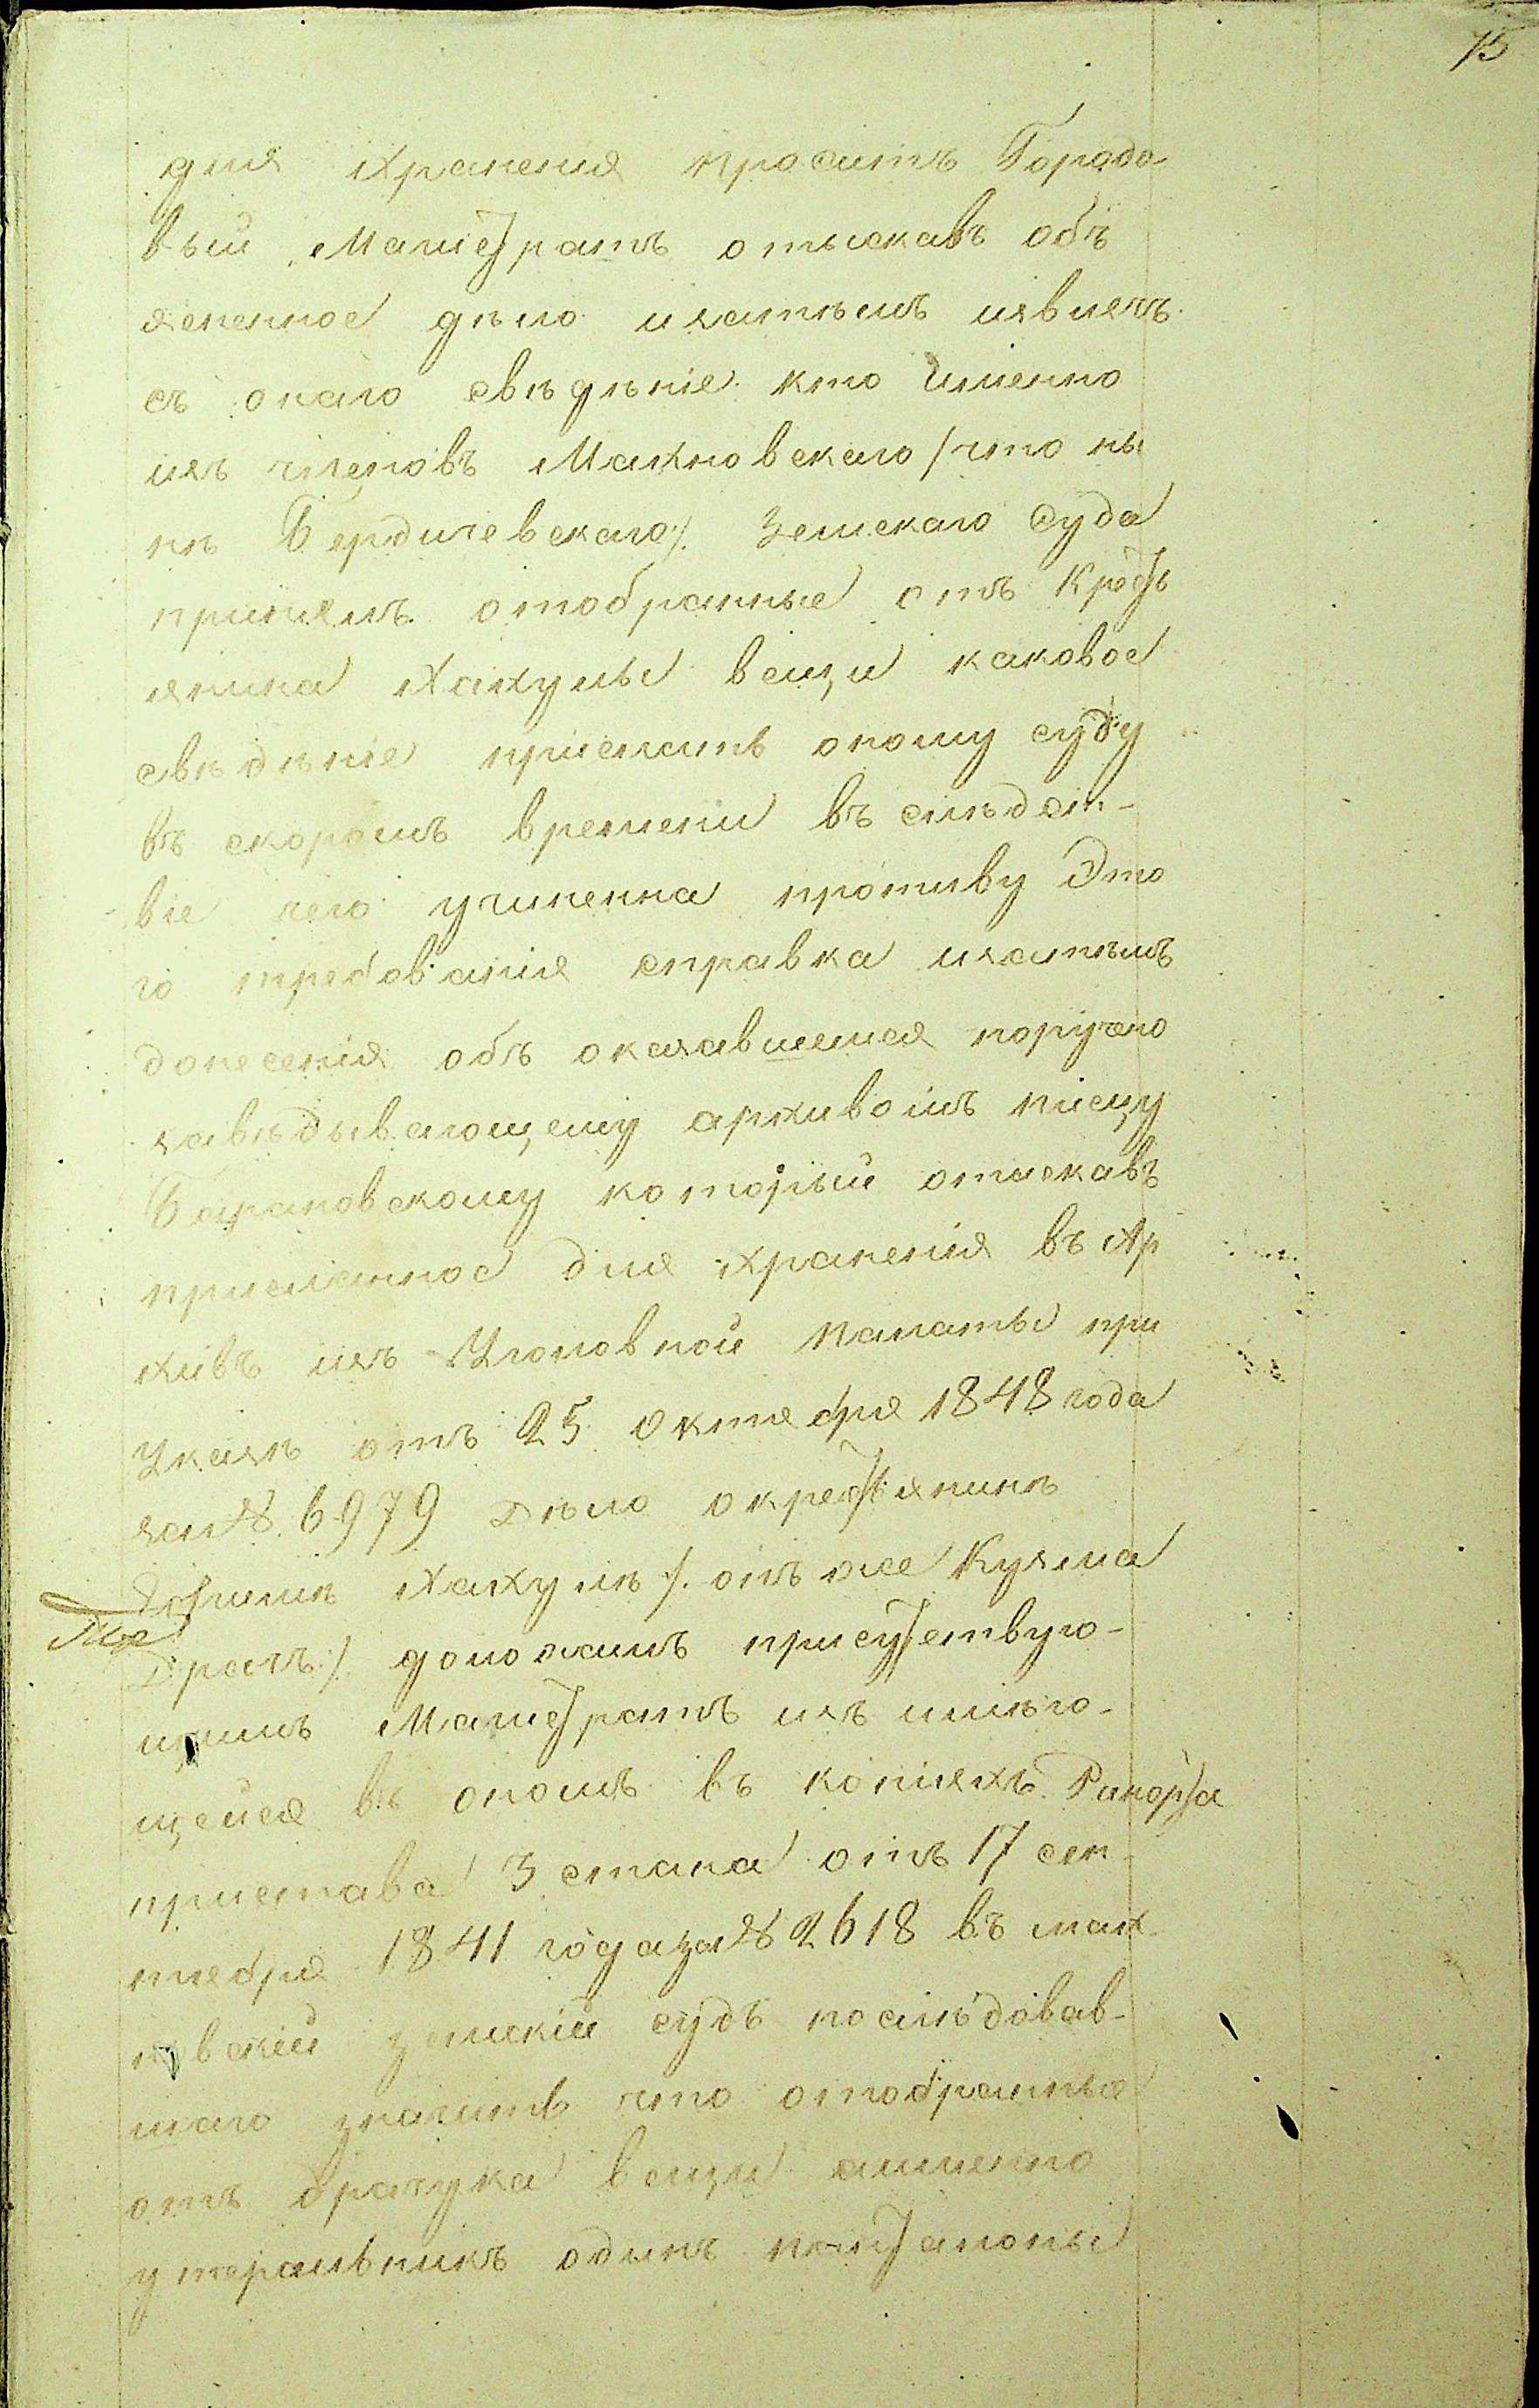 15
для храненія проситъ Городо
вый Магистратъ отыскавъ объ
ясненное дѣло изатѣмъ извлечь
съ онаго свѣдѣніе кто именно
изъ членовъ Махновскаго /что ны
нѣ Бердичевскаго/. Земскаго Суда
принялъ отобранные отъ Кресть
янина Хахулы вещи каковое
свѣдѣніе прислать оному суду
въ скоромъ времени въ слѣдст-
віе чего учиненна противу Это
го требованія справка изатѣмъ
донесенія объ оказавшемся поручено
завѣдывающему архивомъ писцу
Барановскому который отискавъ
присланное для храненія въ Ар
хивъ изъ Уголовной Палаты при
Указѣ отъ 25 Октября 1848 года
за № 6979 Дѣло о крестьянинѣ
Хахулѣ /. онъ же Кузма
Драчъ /. доложилъ присутствую-
щимъ Магистратъ изъ имѣю-
щейся въ ономъ въ копіяхъ Рапорта
пристава 3 стана отъ 17 сен-
тября 1841 года за № 2618 въ мах
новскій земскій судъ послѣдовав-
шаго значитъ что отобранные
отъ драчука вещи аименно
утеральникъ одинъ понталоны